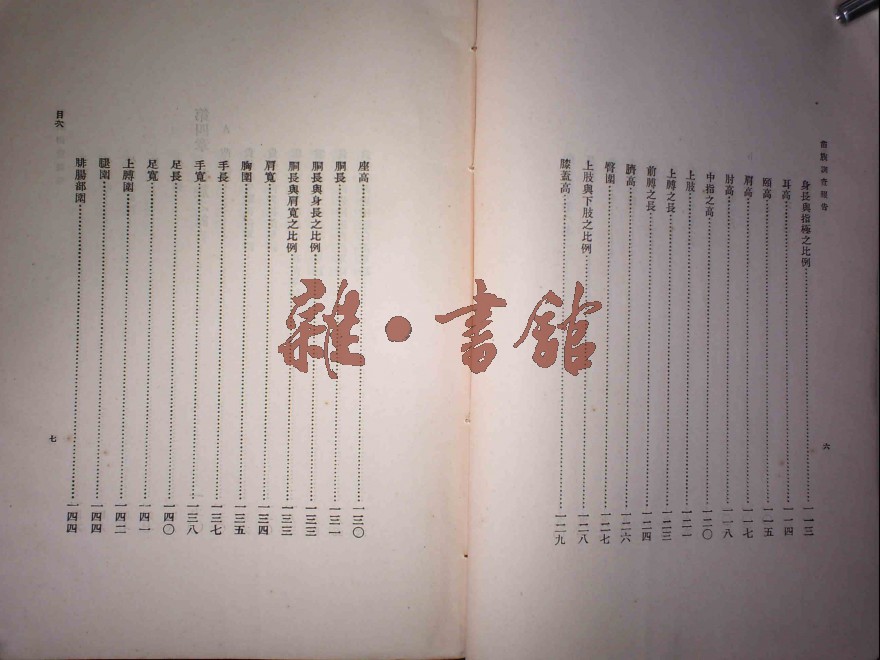 苗族調查報告
身長與指極之比例…………一一三
耳高…………一一四
頤高…………一一五
肩高…………一一七
肘高…………一一八
中指之高…………一二〇
上肢…………一二一
上膊之長…………一二三
前膊之長…………一二四
臍高…………一二六
臀圍…………一二七
上肢與下肢之比例…………一二八
膝蓋高…………一二九
六
座高…………一三〇
胴長…………一三一
胴長與身長之比例…………一三三
胴長與肩寬之比例…………一三三
肩寬…………一三四
胸圍…………一三五
手長…………一三七
手寬…………一三八
足長…………一四〇
足寬…………一四一
上膊圍…………一四二
腿圍…………一四四
腓腸部圍…………一四四
目次
七
雜·書館